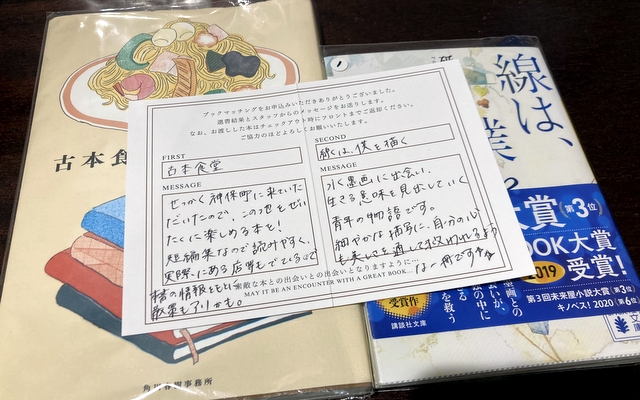 古本食
角川春樹事務所
ブックマッチングをお申込みいただきありがとうございました。
選書結果とスタッフからのメッセージをお送りします。
なお、お渡しした本はチェックアウト時にフロントまでご返却ください。
ご協力のほどよろしくお願いいたします。
FIRST
古本食堂
MESSAGE
せっかく神保町に来ていた
だいたので、この地をぜい
たくに楽しめる本を!
短編集なので読みやすく、
実際にある店舗もでているので
本書の情報をもとに
散策もアリかも。
SECOND
線は、僕を描く
MESSAGE
水墨画に出会い、
生きる意味を見出していく
青年の物語です。
細やかな描写に、自分の心
も美しさを通して救われるよう
な一冊です
素敵な本との出会いとの出会いとなりますように…
MAY IT BE AN ENCOUNTER WITH A GREAT BOOK...
線は、
大賞
(第3位)
BOOK大賞
2019
受賞!
第3回未来屋小説大賞(第3位)
キノベス!2020(第6位)
受賞作
講談社文庫